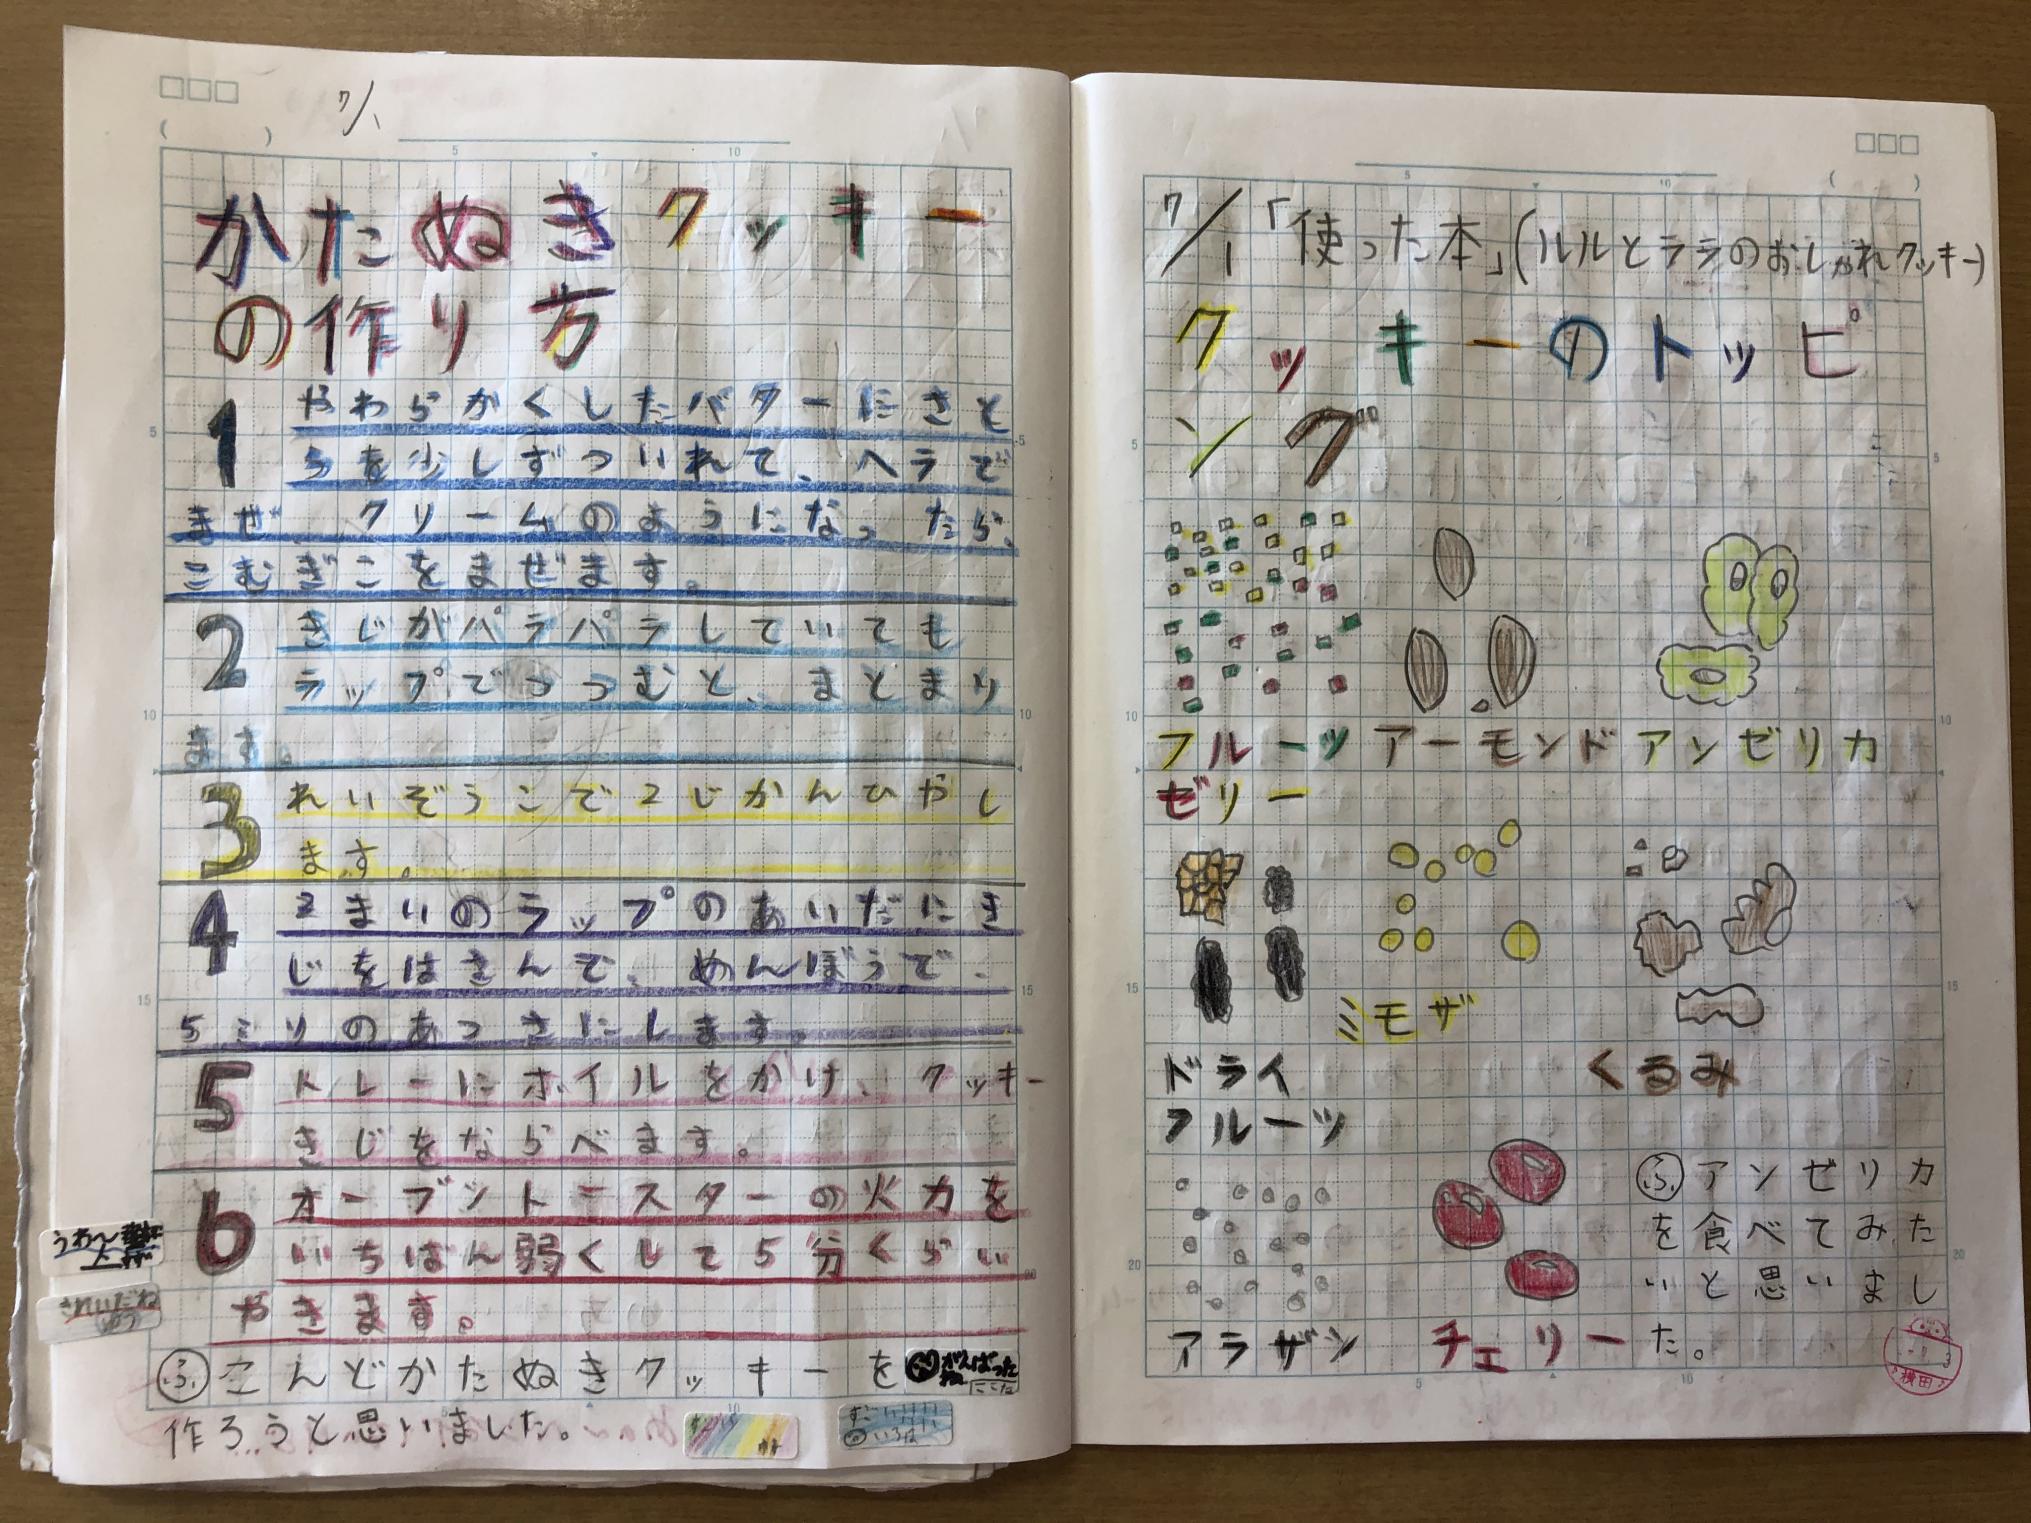 7/1
かたぬきクッキー
の作り方
1 やわらかくしたバターにさと
うを少しずついれて、ヘラで
まぜ、クリームのようになったら、
こむぎこをまぜます。
2 きじがパラパラしていても
ラップでつつむと、まとまり
ます。
3 れいぞうこで2じかんひやし
ます。
4 2まいのラップのあいだにき
じをはさんで、めんぼうで、
5ミリのあつさにします。
5 トレーにホイルをかけ、クッキー
きじをならべます。
6 オーブントースターの火力を
いちばん弱くして5分くらい
やきます。
ふ こんどかたぬきクッキーを
作ろうと思いました。
きれいだね
がんばった
すごい
7/1「使った本」(ルルとララのおしゃれクッキー)
クッキーのトッピ
ング
フルーツ アーモンド アンゼリカ
ゼリー
ミモザ
ドライ くるみ
フルーツ
ふ アンゼリカ
を食べてみた
いと思いまし
アラザン チェリー た。
横田
5
10
15
20